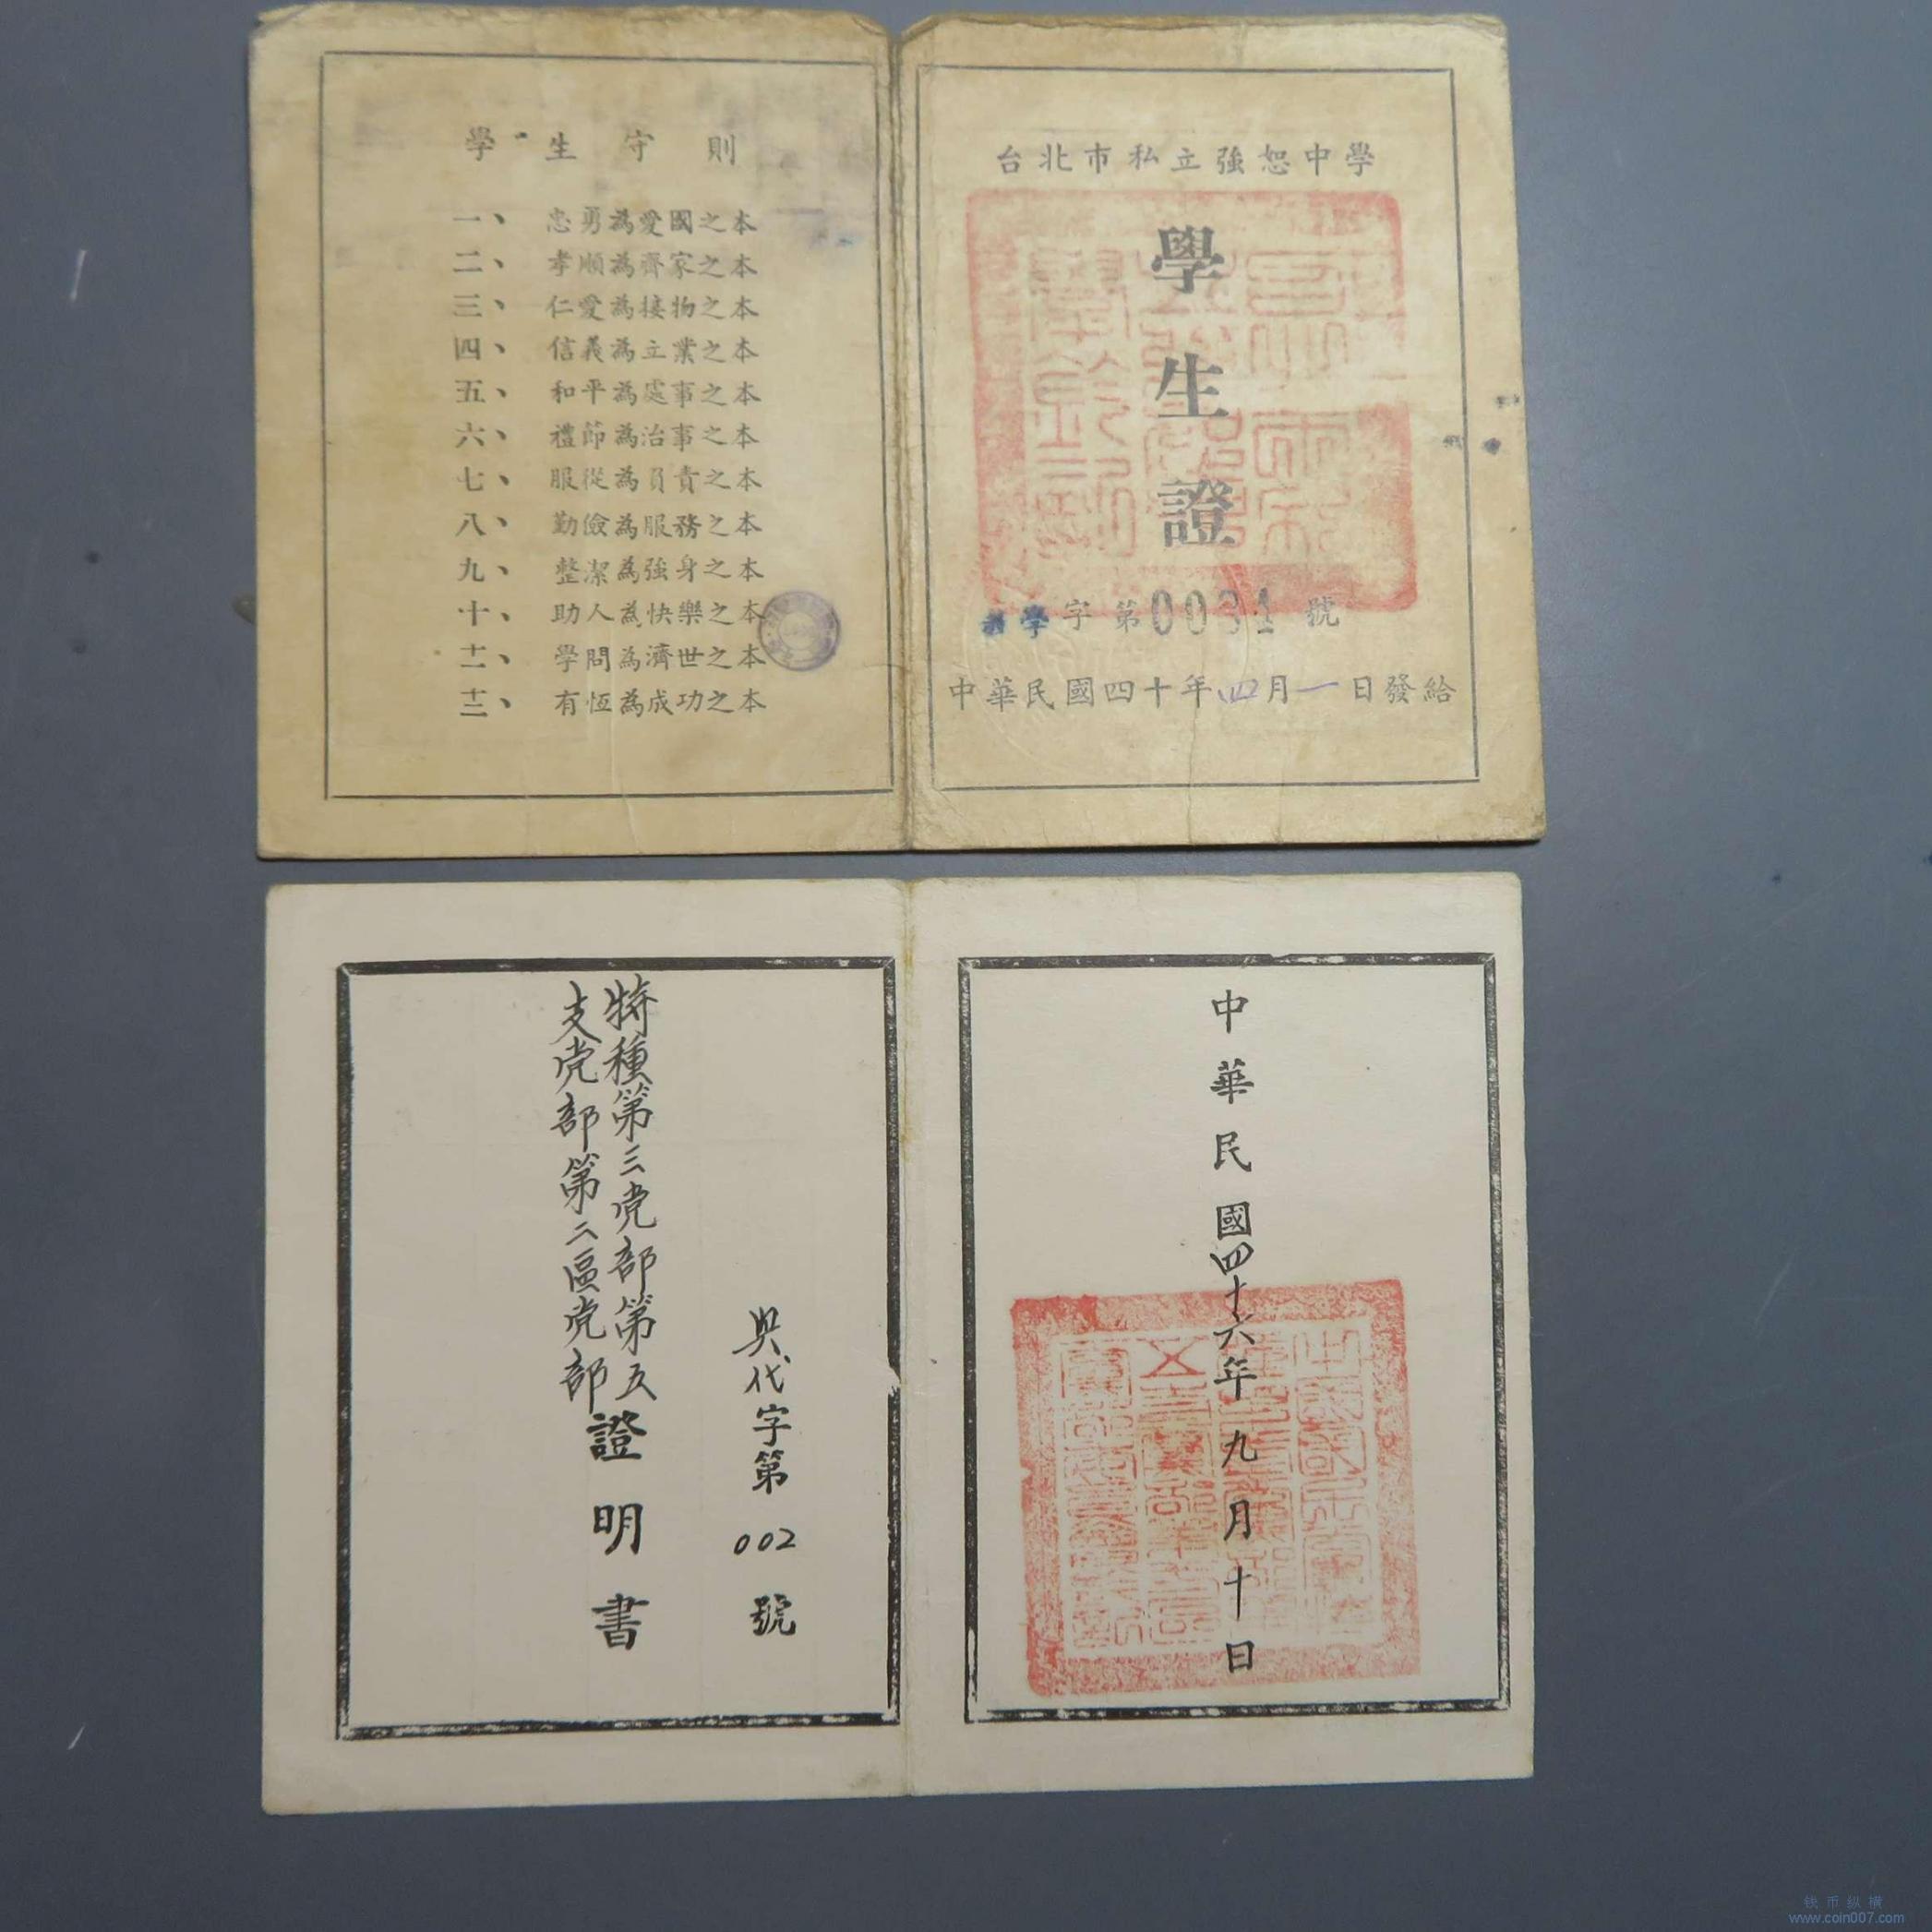 學生守則
一、忠勇為愛國之本
二、孝順為齊家之本
三、仁愛為接物之本
四、信義為立業之本
五、和平為處事之本
六、禮節為治事之本
七、服從為負責之本
八、勤儉為服務之本
九、整潔為強身之本
十、助人為快樂之本
十一、學問為濟世之本
十二、有恆為成功之本
台北市私立強恕中學
學生證
學字第0031號
中華民國四十年四月一日發給
中華民國四十六年九月十日
字第002號
特種第三党部第五
支党部第二區党部
證明書
钱币纵横
www.coin007.com